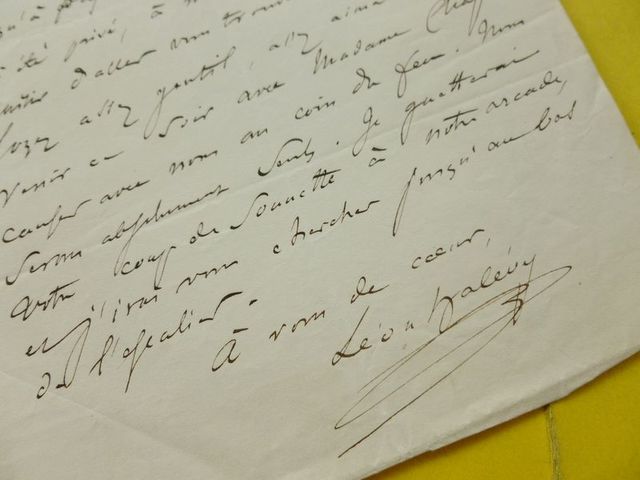 qu'à
été privé, à
d'aller vous trouver
soyez assez gentil, assez aima
venir ce soir avec Madame
causer avec nous au coin du feu. Nous
serons absolument seuls. Je guetterai
votre coup de sonnette à notre arcade,
et j'irai vous chercher jusqu'au bas
de l'escalier.
à vous de cœur,
Léon Halévy